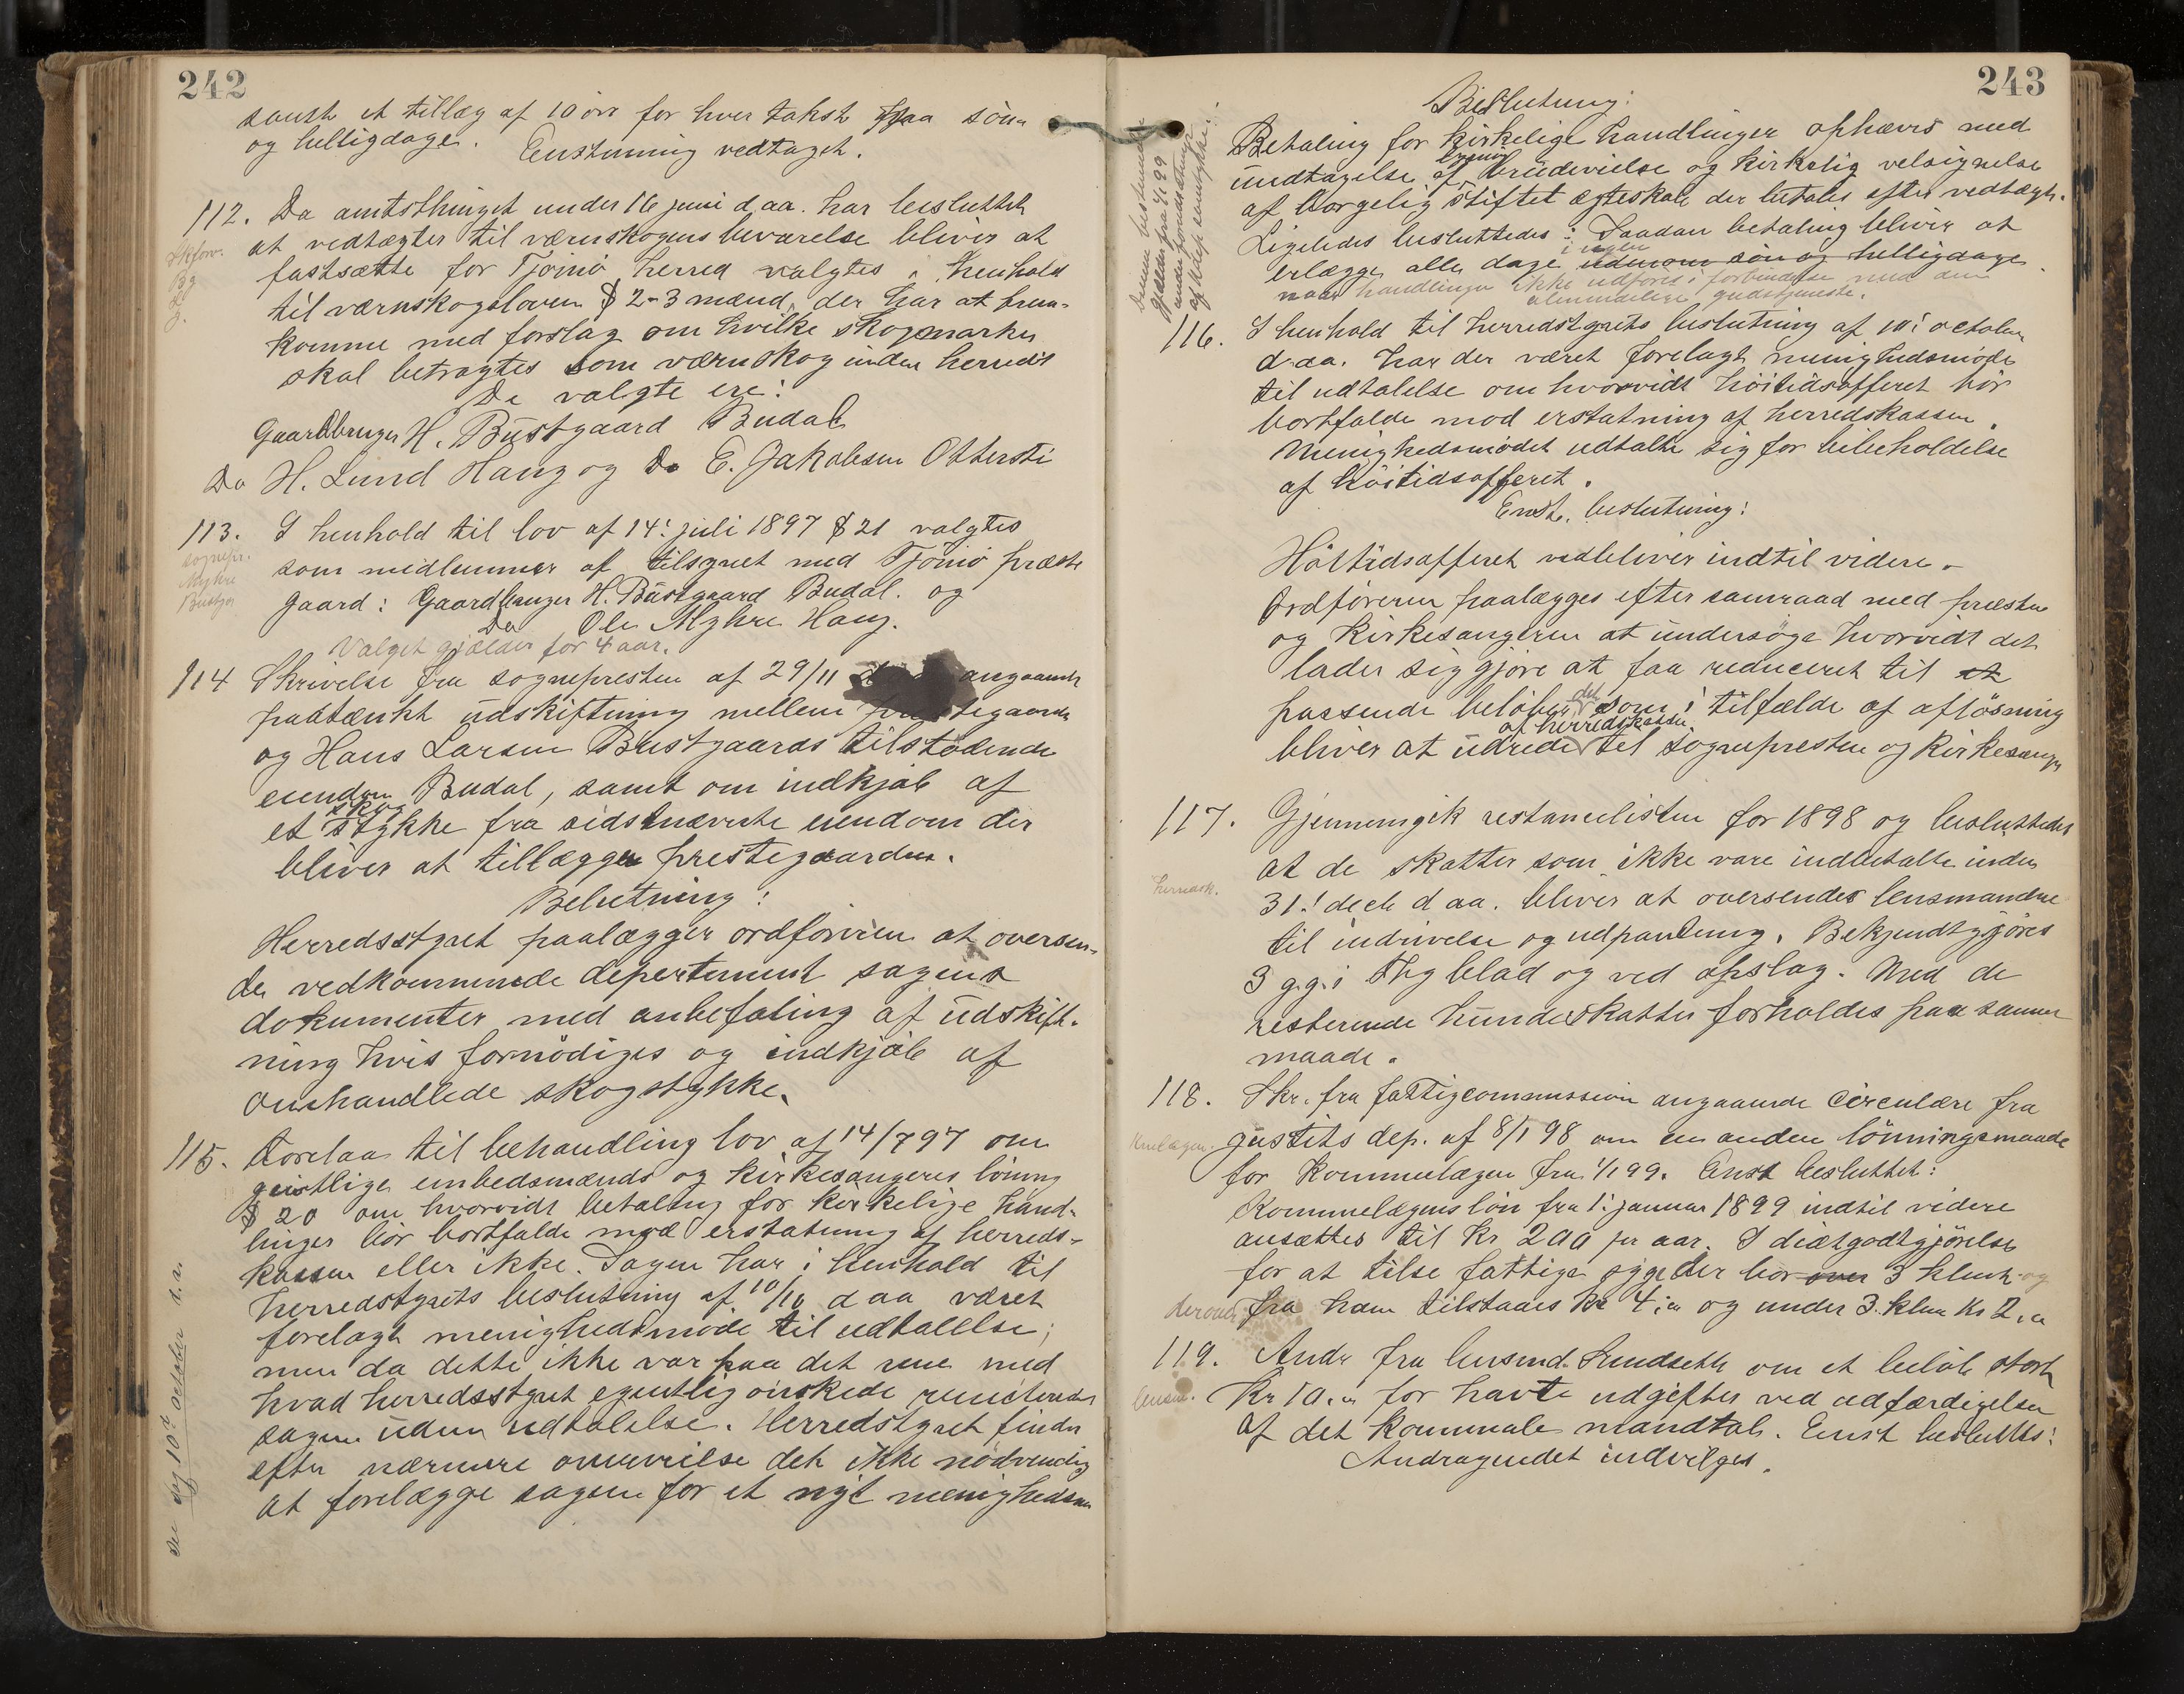 242
samt et tillæg af 10 øre for hver takst paa søn-
og helligdage. Enstemmig vedtaget.
112. Da amtsthinget under 16 juni d. aa. har besluttet
at vedtægter til værnskogens bevarelse bliver at
fastsætte for Tjömö herred valgtes i henhold
til værnskogsloven § 2 - 3 mænd, der har at frem-
komme med forslag om hvilke skogmarker
skal betragtes som værnskog inden herredet
De valgte ere:
Gaardbruger H. Bustgaard Budal
Do H. Lund Haug og Do E. Jakobsen Ottersti
113. I henhold til lov af 14: juli 1897 § 21 valgtes
sognepr.
Myhre
som medlemmer af tilsynet med Tjömö præste
gaard: Gaardbruger H. Bustgaard Budal. og
Do Ole Myhre Haug.
Valget gjælder for 4 aar.
114 Skrivelse fra sognepresten af 29/11 angaaende
paatænkt udskiftning mellem prestegaarden
og Hans Larsen Bustgaards tilstødende
eiendom Budal, samt om indkjøb af
et skogstykke fra sidstnævnte eiendom der
bliver at tillægge prestegaarden.
Belutning:
Herredsstyret paalægger ordføreren at oversen-
de vedkommende departement sagens
dokumenter med anbefaling af udskift-
ning hvis fornødiges og indkjøb af
omhandlede skogstykke.
115. Forelaa til behandling lov af 14/7 97 om
geistlige embedsmænds og kirkesangeres lönning
§ 20 om hvorvidt betaling for kirkelige hand-
linger bör bortfalde mod erstatning af herreds-
kassen eller ikke. Sagen har i henhold til
herredstyrets beslutning af 10/10 d aa været
forelagt menighedsmøde til udtalelse;
men da dette ikke var paa det rene med
hvad herredsstyret egentlig önskede remitteredes
sagen uden udtalelse. Herredstyret finder
efter nærmere overveielse det ikke nödvendig
at forelægge sagen for et nyt menighedsm
Se sag 10de october d. a.
243
Beslutning:
Betaling for kirkelige handlinger ophæves med
undtagelse af brudevielse og kirkelig velsignelse
af borgelig stiftet ægteskab der betales efter vedtægt.
Ligeledes besluttedes: Saadan betaling bliver at
erlægge alle dage udenom søn og helligdage
naar handlingen ikke udføres i forbindelse med den
almindelige gudstjeneste.
116. I henhold til herredstyrets beslutning af 10: october
d. aa. har der været forelagt menighedsmøde
til udtalelse om hvorvidt höitidsofferet bör
bortfalde mod erstatning af herredskassen.
Menighedsmødet udtalte sig for bibeholdelse
af höitidsofferet.
Enst. beslutning:
Höitidsofferet vedbliver indtil videre.
Ordföreren paalægges efter samraad med præsten
og kirkesangeren at undersöge hvorvidt det
lader sig gjöre at faa reduceret til et
passende belöb det som i tilfælde af aflösning
bliver at udrede af herredskassen til sognepresten og kirkesanger
117. Gjennemgik restancelisten for 1898 og besluttedes
at de skatter som ikke vare indbetalte inden
31.' decb d aa. bliver at oversendes lensmanden
til inddrivelse og udpantning. Bekjendtgjöres
3 g.g. i Tbg blad og ved opslag. Med de
resterende hundeskatter forholdes paa samme
maade.
118. Skr. fra fattigcommissionen angaaende circulære fra
justits dep. af 8/1 98 om en anden lönningsmaade
for kommunelægen fra 1/1 99. Enst besluttet:
Kommunelægens lön fra 1: januar 1899 indtil videre
ansættes til kr 200 pr aar. I diætgodtgjörelse
for at tilse fattige syge der bor over 3 klm og
derover fra ham tilstaaes kr 4.00 og under 3. klm kr 2.00
119. Andr fra lensmd. Sundseth om et belöb stort
lensm. Kr 10.00 for havte udgifter ved udfærdigelsen
af det kommunale mandtal. Enst besluttes:
Andragendet indvilges.